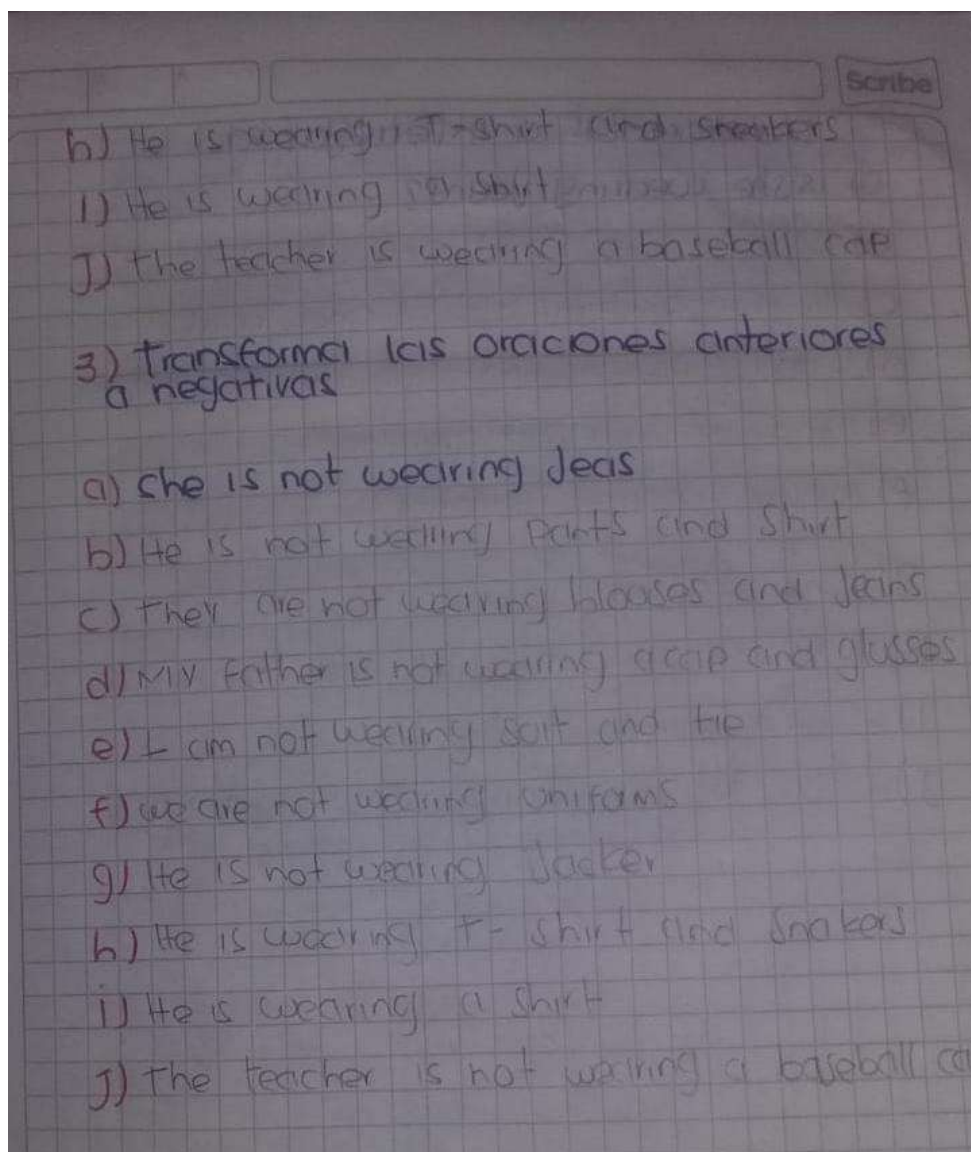 Scribe
h) He is wearing T-shirt and sneakers
i) He is wearing a shirt
J) the teacher is wearing a baseball cap
3) Transforma las oraciones anteriores
a negativas
a) She is not wearing Jeas
b) He is not wearing pants and shirt
c) they are not wearing blouses and Jeans
d) My father is not wearing a cap and glasses
e) I am not wearing suit and tie
f) we are not wearing uniforms
g) He is not wearing Jacker
h) He is wearing t-shirt and snakers
i) He is wearing a shirt
J) the teacher is not wearing a baseball ca